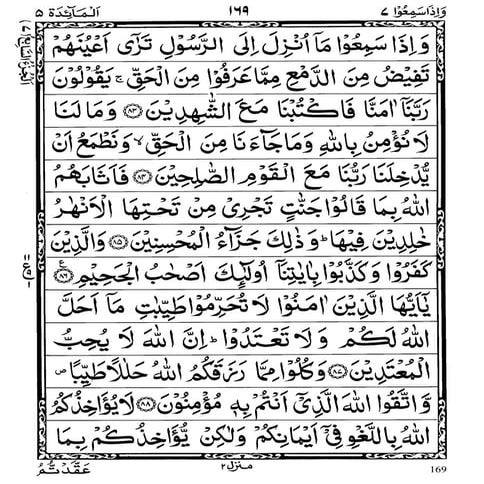 وَاِذَا سَمِعُوْا ٧ ١٦٩ اَلْمَآئِدَة ٥
وَاِذَا سَمِعُوْا مَاۤ اُنْزِلَ اِلَى الرَّسُوْلِ تَرٰۤى اَعْيُنَهُمْ
تَفِيْضُ مِنَ الدَّمْعِ مِمَّا عَرَفُوْا مِنَ الْحَقِّ ۚ يَقُوْلُوْنَ
رَبَّنَاۤ اٰمَنَّا فَاكْتُبْنَا مَعَ الشّٰهِدِيْنَ ﴿٨٣﴾ وَمَا لَنَا
لَا نُؤْمِنُ بِاللّٰهِ وَمَا جَآءَنَا مِنَ الْحَقِّ ۙ وَنَطْمَعُ اَنْ
يُّدْخِلَنَا رَبُّنَا مَعَ الْقَوْمِ الصّٰلِحِيْنَ ﴿٨٤﴾ فَاَثَابَهُمُ
اللّٰهُ بِمَا قَالُوْا جَنّٰتٍ تَجْرِيْ مِنْ تَحْتِهَا الْاَنْهٰرُ
خٰلِدِيْنَ فِيْهَا ؕ وَذٰلِكَ جَزَآءُ الْمُحْسِنِيْنَ ﴿٨٥﴾ وَالَّذِيْنَ
كَفَرُوْا وَكَذَّبُوْا بِاٰيٰتِنَاۤ اُولٰٓئِكَ اَصْحٰبُ الْجَحِيْمِ ﴿٨٦﴾ ع
يٰۤاَيُّهَا الَّذِيْنَ اٰمَنُوْا لَا تُحَرِّمُوْا طَيِّبٰتِ مَاۤ اَحَلَّ
اللّٰهُ لَكُمْ وَلَا تَعْتَدُوْا ؕ اِنَّ اللّٰهَ لَا يُحِبُّ
الْمُعْتَدِيْنَ ﴿٨٧﴾ وَكُلُوْا مِمَّا رَزَقَكُمُ اللّٰهُ حَلٰلًا طَيِّبًا ص
وَّاتَّقُوا اللّٰهَ الَّذِيْۤ اَنْتُمْ بِهٖ مُؤْمِنُوْنَ ﴿٨٨﴾ لَا يُؤَاخِذُكُمُ
اللّٰهُ بِاللَّغْوِ فِيْۤ اَيْمَانِكُمْ وَلٰكِنْ يُّؤَاخِذُكُمْ بِمَا
عَقَّدْتُّمُ منزل ٢ 169